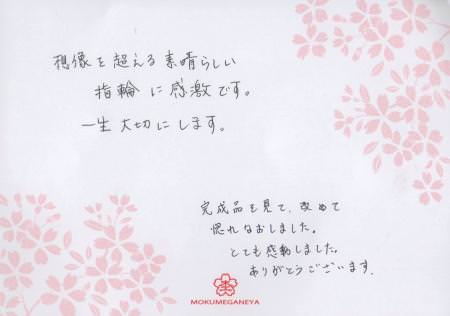 想像を超える素晴らしい
指輪に感激です。
一生大切にします。
完成品を見て、改めて
惚れなおしました。
とても感動しました。
ありがとうございます。
MOKUMEGANEYA